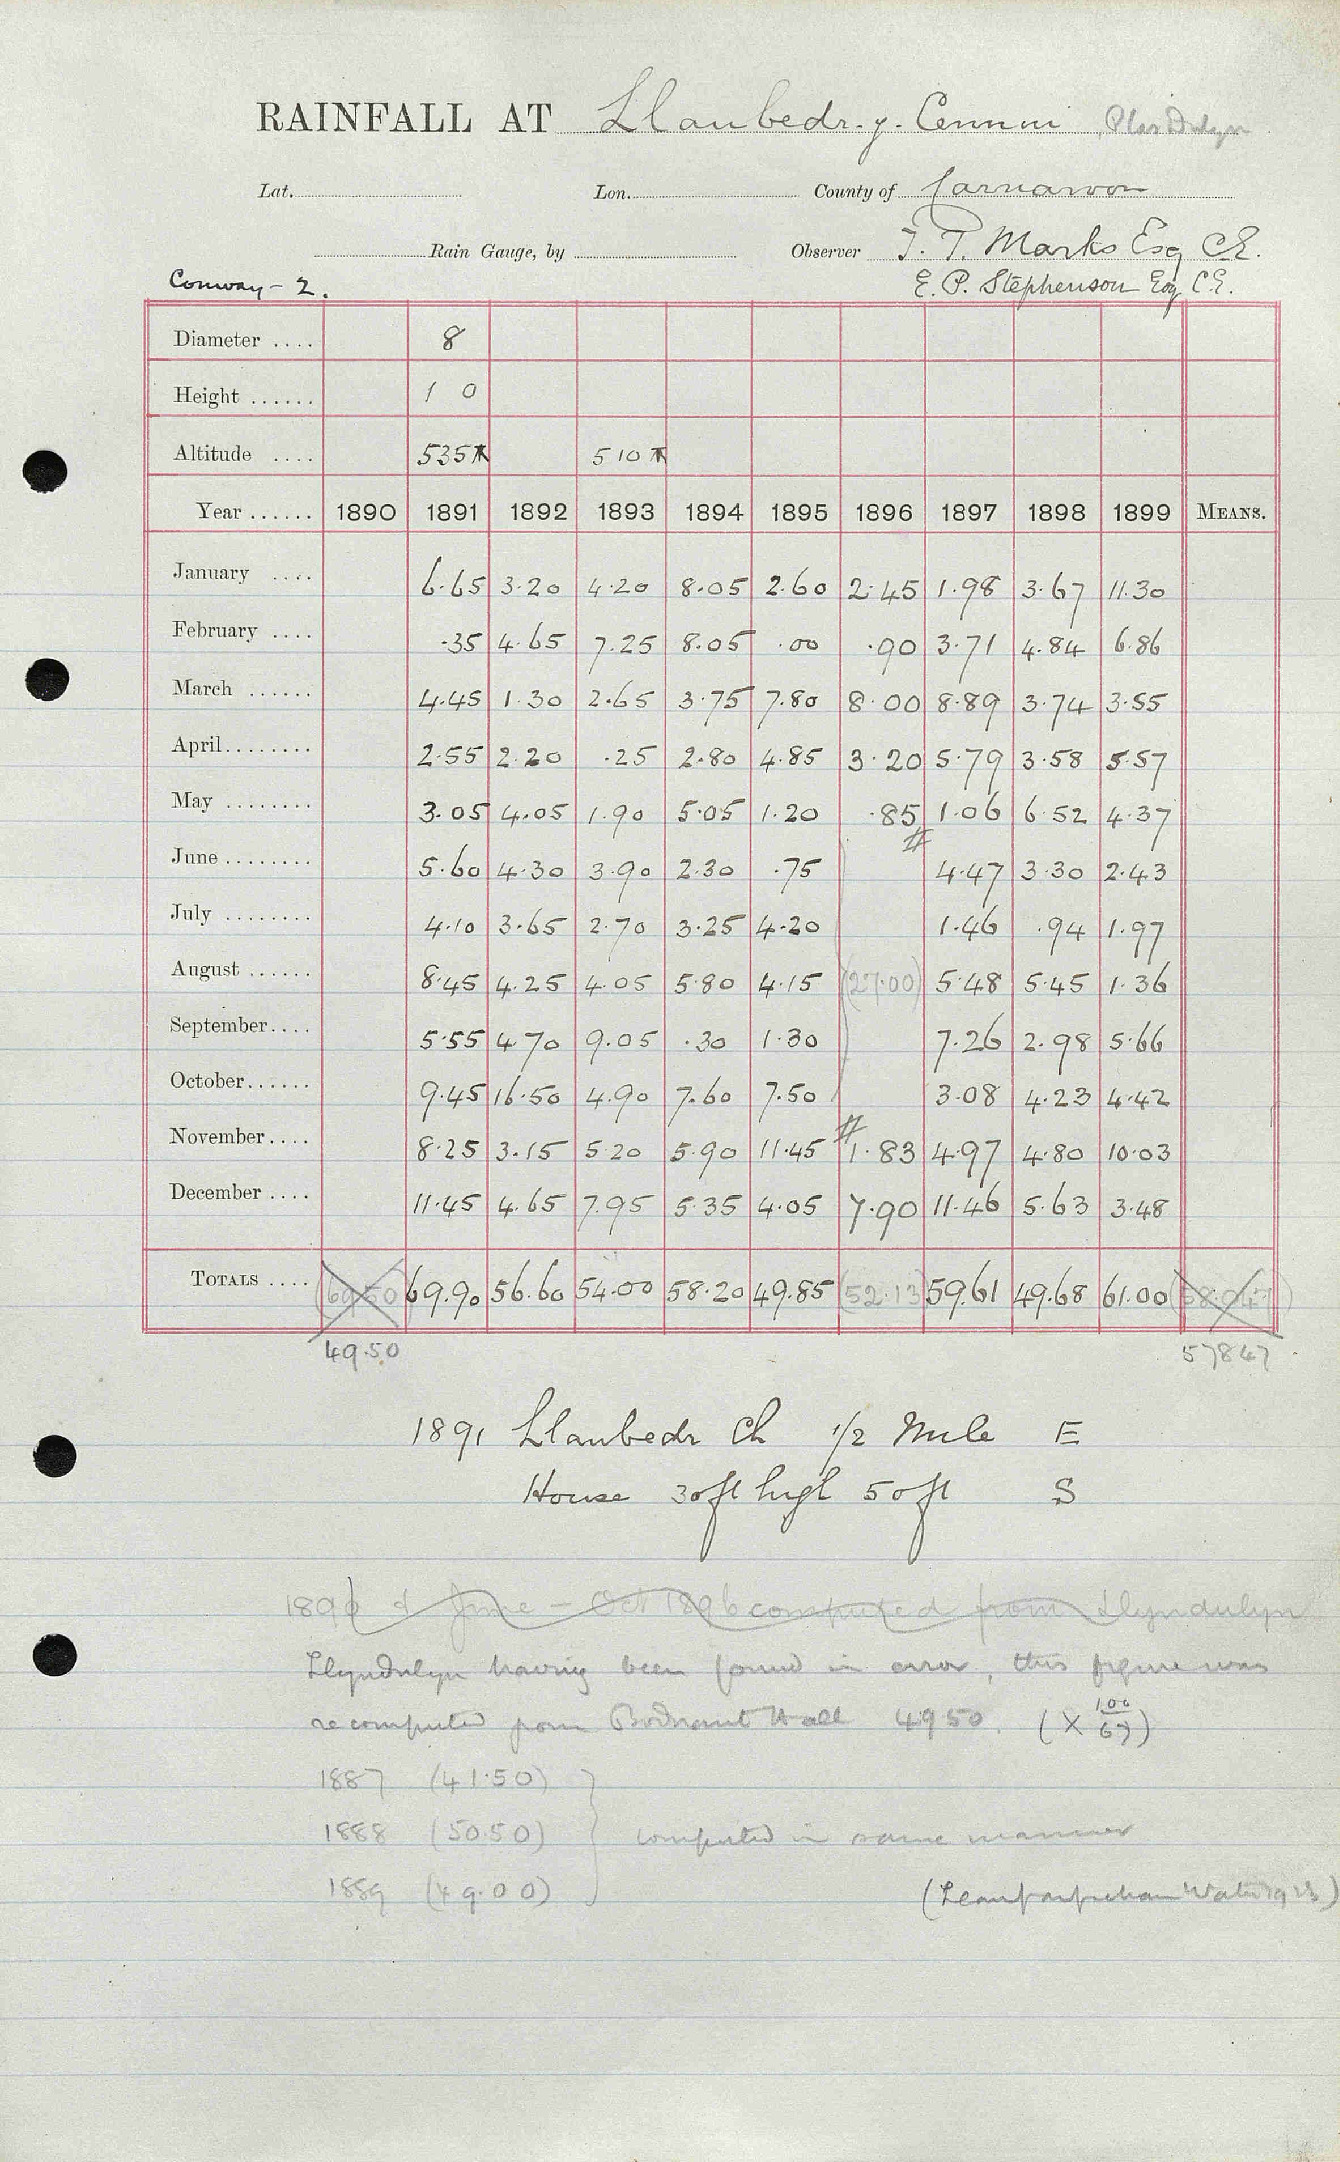 RAINFALL AT Llanbedr. y. Cennin, Plas Dulyn
Lat. Lon. County of Carnarvon
Rain Gauge, by Observer T. T. Marks Esq C.E.
Conway - 2. E. P. Stephenson Esq C.E.
Diameter .... 8
Height ...... 1 0
Altitude .... 535 510
Year ...... 1890 1891 1892 1893 1894 1895 1896 1897 1898 1899 MEANS.
January .... 6.65 3.20 4.20 8.05 2.60 2.45 1.98 3.67 11.30
February .... .35 4.65 7.25 8.05 .00 .90 3.71 4.84 6.86
March ...... 4.45 1.30 2.65 3.75 7.80 8.00 8.89 3.74 3.55
April........ 2.55 2.20 .25 2.80 4.85 3.20 5.79 3.58 5.57
May ........ 3.05 4.05 1.90 5.05 1.20 .85 1.06 6.52 4.37
#
June ........ 5.60 4.30 3.90 2.30 .75 4.47 3.30 2.43
July ........ 4.10 3.65 2.70 3.25 4.20 1.46 .94 1.97
August ...... 8.45 4.25 4.05 5.80 4.15 (27.00) 5.48 5.45 1.36
September.... 5.55 4.70 9.05 .30 1.30 7.26 2.98 5.66
October...... 9.45 16.50 4.90 7.60 7.50 3.08 4.23 4.42
November.... 8.25 3.15 5.20 5.90 11.45 #1.83 4.97 4.80 10.03
December .... 11.45 4.65 7.95 5.35 4.05 7.90 11.46 5.63 3.48
TOTALS .... (69.50) 69.90 56.60 54.00 58.20 49.85 (52.13) 59.61 49.68 61.00 (58.047)
49.50 57847
1891 Llanbedr Ch 1/2 Mile E
House 30ft high 50ft S
1890 & June - Oct 1896 computed from Llyndulyn
Llyndulyn having been found in error, this figure was
recomputed from Bodnant Hall 4950. (X 100/67)
1887 (41.50)
1888 (50.50) } computed in same manner
1889 (49.00)